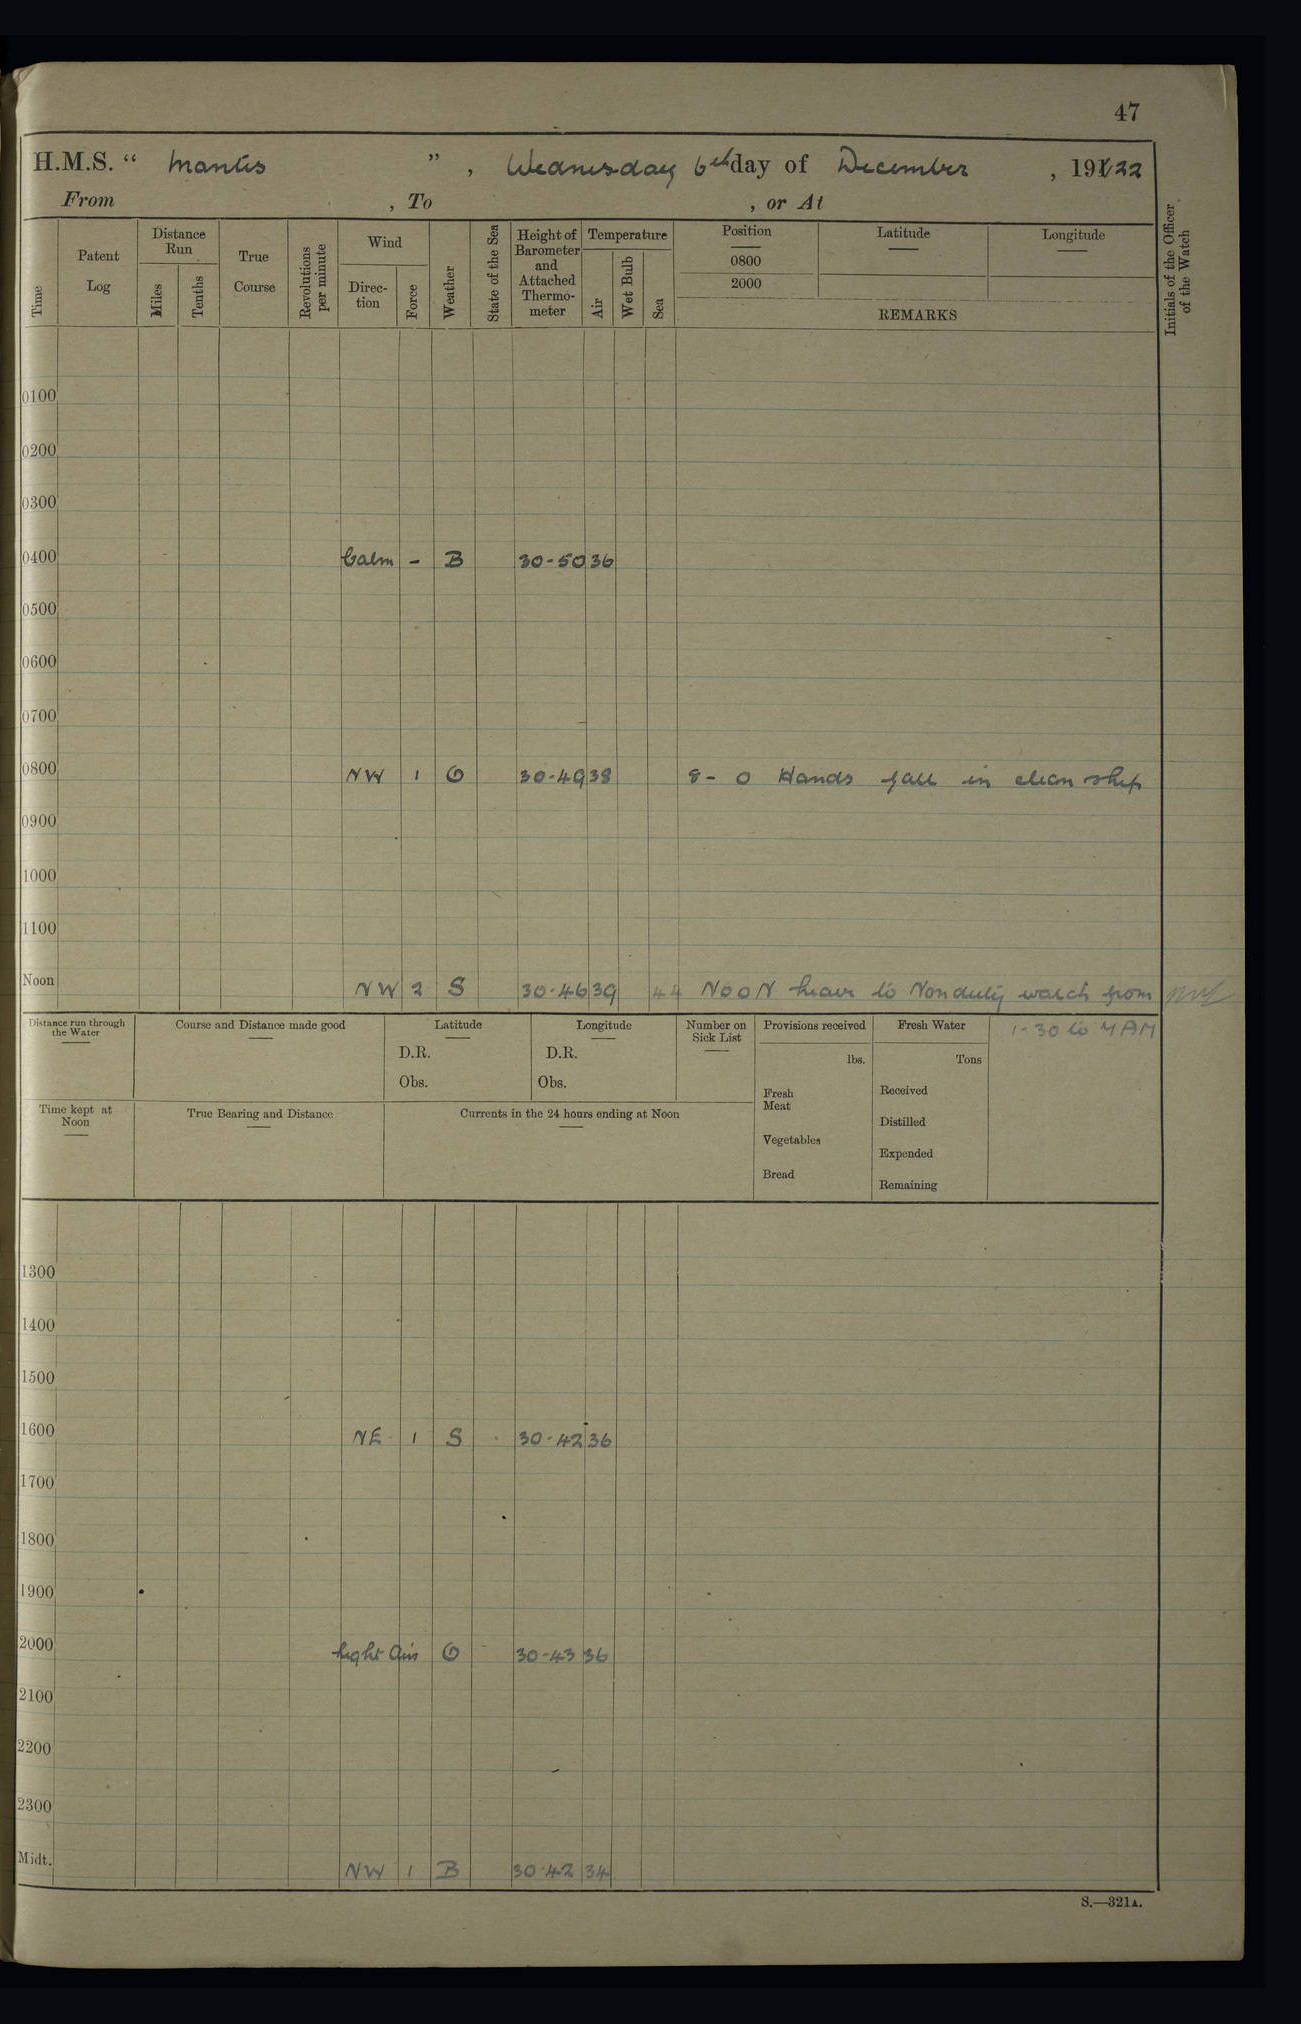 47
H.M.S. " Mantis ", Wednesday 6th day of December, 1922
From , To , or At
Time
Patent Log
Distance Run
Miles
Tenths
True Course
Revolutions per minute
Wind
Direc-tion
Force
Weather
State of the Sea
Height of Barometer and Attached Thermo-meter
Temperature
Air
Wet Bulb
Sea
Position
Latitude
Longitude
0800
2000
REMARKS
Initials of the Officer of the Watch
0100
0200
0300
0400 Calm - B 30-50 36
0500
0600
0700
0800 NW 1 O 30-49 38 8-0 Hands fall in clean ship
0900
1000
1100
Noon NW 2 S 30-46 39 44 NOON leave to Non duty watch from
1-30 to 7 AM
Distance run through the Water
Course and Distance made good
Latitude
D.R.
Obs.
Longitude
D.R.
Obs.
Number on Sick List
Provisions received
lbs.
Fresh Meat
Vegetables
Bread
Fresh Water
Tons
Received
Distilled
Expended
Remaining
Time kept at Noon
True Bearing and Distance
Currents in the 24 hours ending at Noon
1300
1400
1500
1600 NE 1 S 30-42 36
1700
1800
1900
2000 Light Airs O 30-43 36
2100
2200
2300
Midt. NW 1 B 30-42 34
S.—321A.